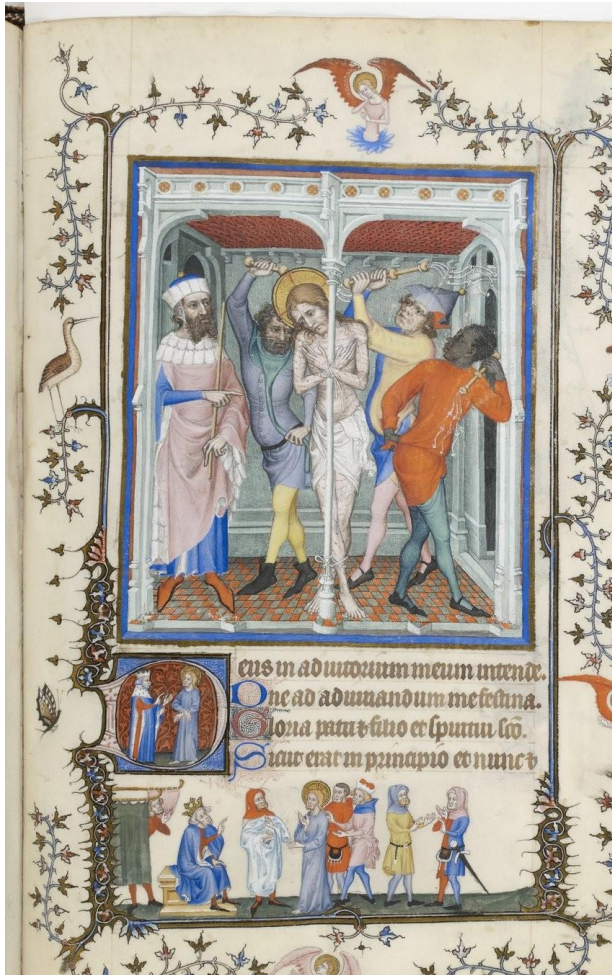 Deus in adiutorium meum intende.
Dne ad adiuuandum me festina.
Gloria patri & filio et spiritui sco.
Sicut erat in principio et nunc &